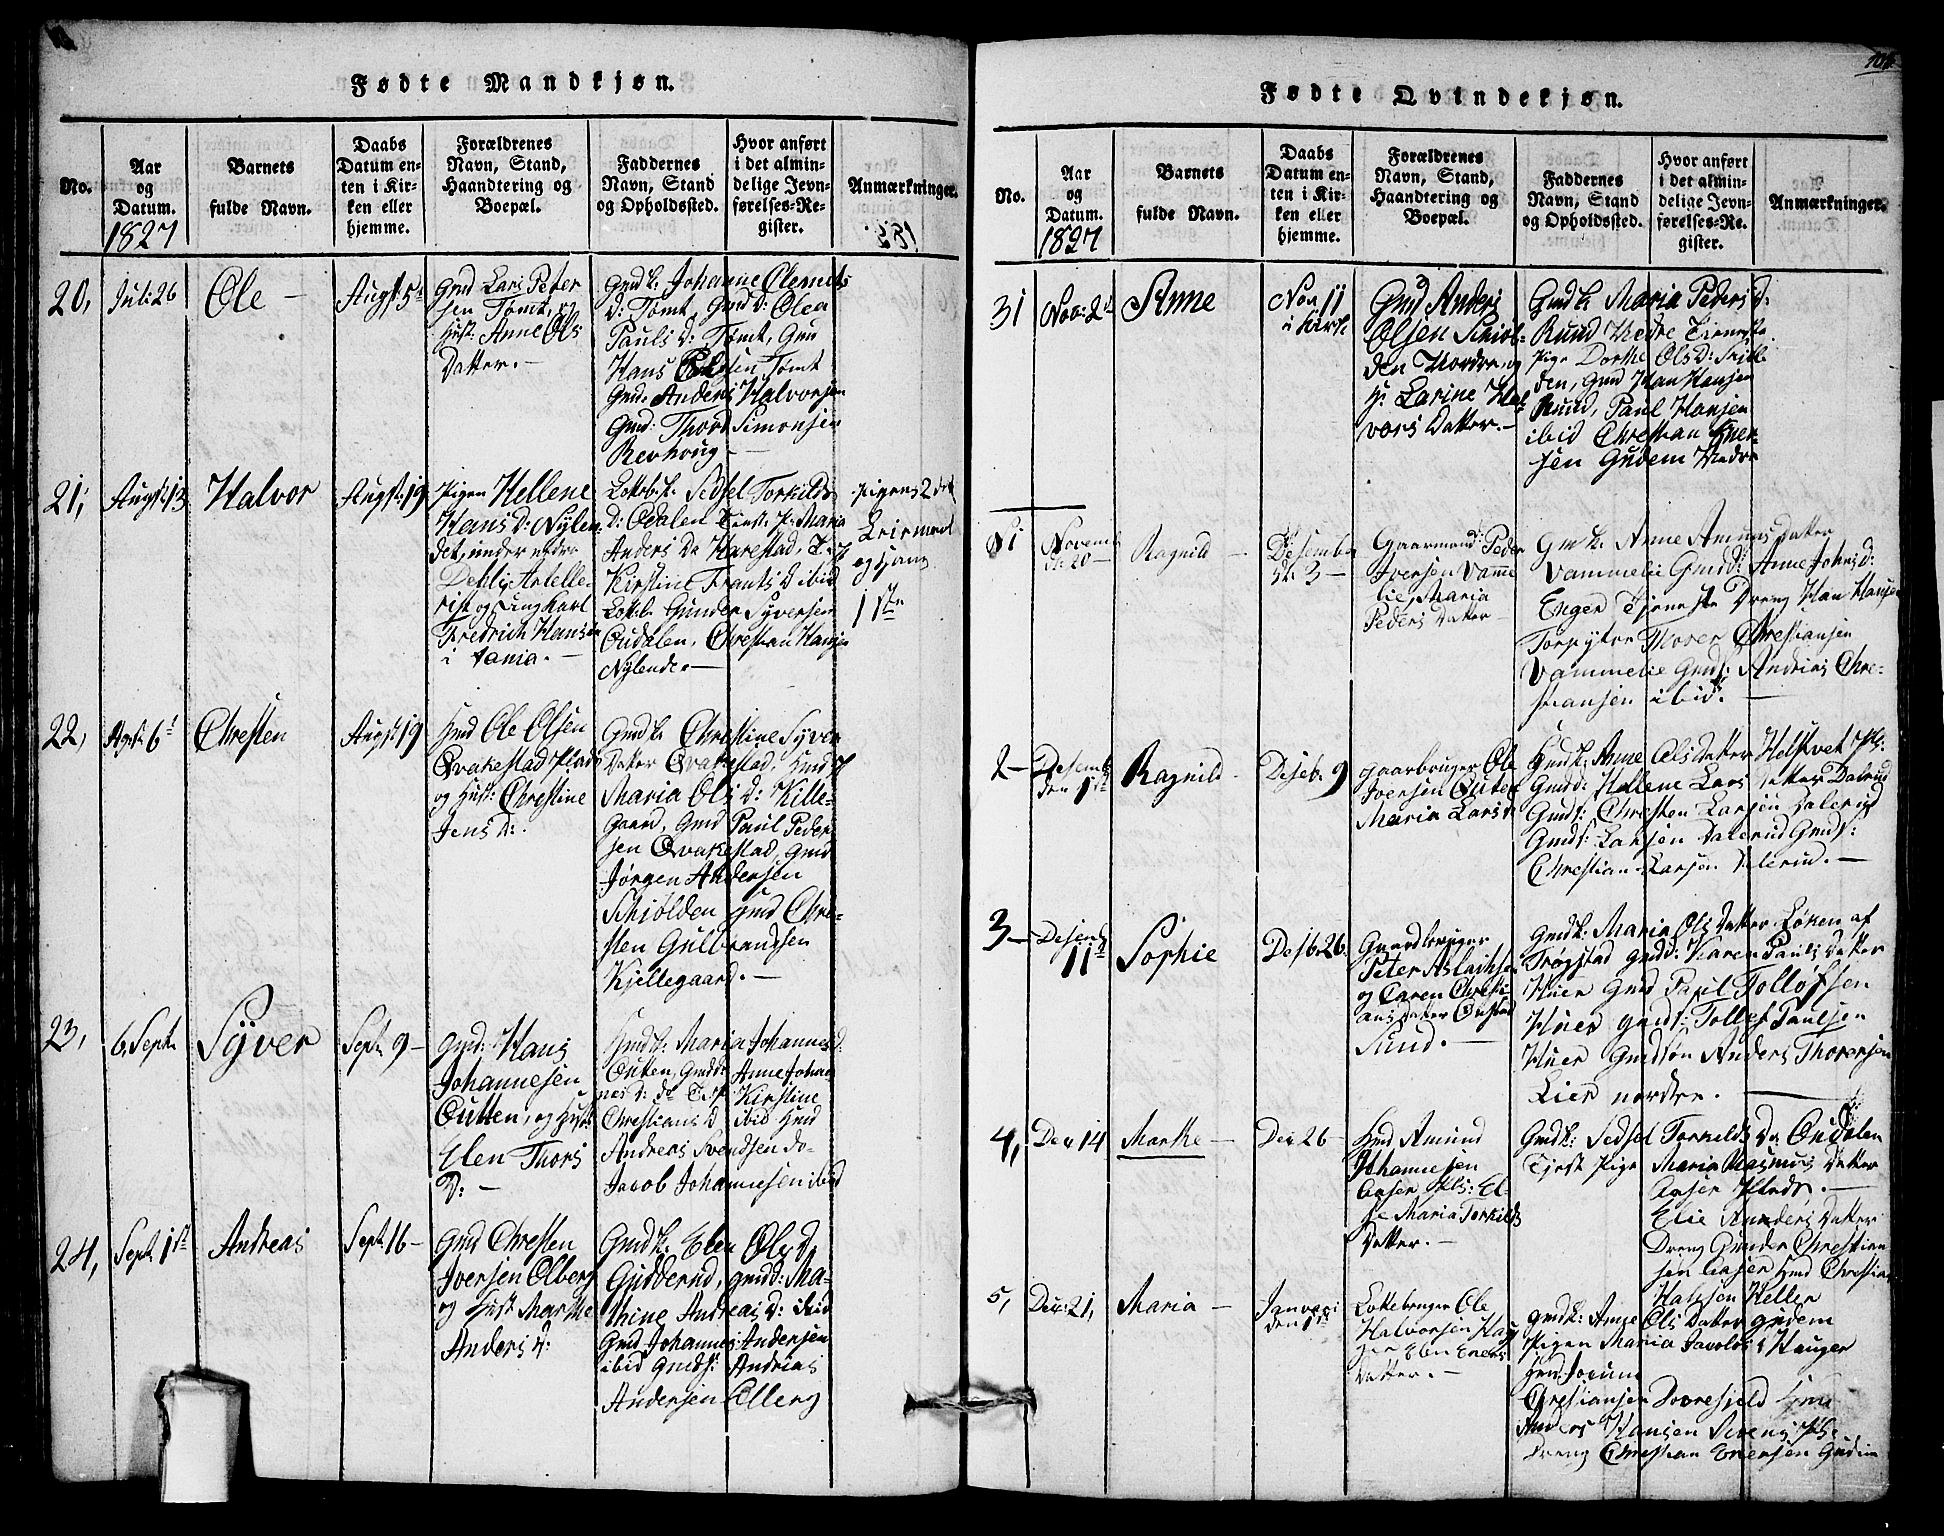 Fødte Mandkjøn.
No.
Aar
og
Datum.
1827
Barnets
fulde Navn.
Daabs
Datum en-
ten i Kir-
ken eller
hjemme.
Forældrenes
Navn, Stand,
Haandtering og
Boepæl.
Faddernes
Navn, Stand
og Opholdssted.
Hvor anført
i det almin-
delige Jevn-
førelses-Re-
gister.
Anmærkninger.
20,
Juli 26
Ole —
Augst 5
Gmd Lars Peter
sen Tømt, og
Hust: Anne Ols
Datter. —
Gmdk. Johanne Olers
D: Tømt, Gmd D: Olea
Pauls D: Tømt, Gmd
Hans Tømt
Gmd. Anders Halvorsen
Gmd: Thord Simonsen
Revhoug —
21,
Augst: 13
Halvor
Augst: 19
Pigen Hellene
Hans D: Nylen
det, under nedre
Dehli, Artelle-
rist og Ung Karl
Fredrich Hansen
i Vania. —
Sedsel Torkilds
D: Odalen Tienst. P. Maria
Anders D: Harestad, T. P
Kirstine Frants D ibid
Gunder Syversen
Oudalen, Christian Hansen
Nylende —
Pigens 2det
Leiermaal
og Hans
1ste
22,
Agst: 6
Christen
Augst 19
Hmd Ole Olsen
Qvakestad Plads
og Hust: Christine
Jens D:
Gmdk. Christine Syver
Datter Qvakestad, Hmd
Maria Ols D: Kille-
gaard, Gmd Paul Peder
sen Qvakestad, Gmd
Jørgen Andersen
Schiølden Hmd Chri-
sten Gulbrandsen
Kjellegaard. —
23,
6, Sept.
Syver
Sept. 9 —
Gmd: Hans
Johannesen
Outten, og Hust:
Elen Thors
D: —
Hmdk: Maria Johannes D:
Outten, Gmdd: Anne Johan
nes D: do T. P. Kirstine
Christians D ibid Hmd
Andreas Svendsen do
Jacob Johannesen ibid
24,
Sept. 1ste
Andreas
Sept. 16 —
Gmd Christen
Iversen Olberg
og Hust Marthe
Anders D:
Gmdk. Elen Ols D
Gudderud, gmdd: Ma-
thine Andreas D: ibid
Gmd Johannes Andersen
ibid Gmds: Andrias
Andersen Elleng
Fødte Qvindekjøn.
No.
Aar
og
Datum.
1827
Barnets
fulde Navn.
Daabs
Datum en-
ten i Kir-
ken eller
hjemme.
Forældrenes
Navn, Stand,
Haandtering og
Boepæl.
Faddernes
Navn, Stand
og Opholdssted.
Hvor anført
i det almin-
delige Jevn-
førelses-Re-
gister.
Anmærkninger.
31
Nov: 2
Anne
Nov 11
i Kirk
Gmd Anders
Olsen Schiol-
den Nordre, og
H: Larine Hal-
vors Datter. —
Gmdk. Maria Peders D:
Rund Nedre Tieneste
Pige Dorthe Ols D: Skiol
den, Gmd Han Hansen
Rund, Paul Hansen
ibid Christian Ener-
sen Gudem Nedre
1
Novemb
d: 20 —
Ragnild —
Desember
d: 3 —
Gaarmand: Peder
Iversen Vamme
lie, Maria
Peders Datter —
Gmk. Anne Amunds datter
Vammelie Gmdd: Anne Johns D:
Enger Tjeneste Dreng Han Hansen
Thorer Christiansen
Vammelie Gmds: Andreas Chri-
stiansen ibid. —
2 —
Desemb
den 1ste
Ragnild —
Deseb. 9
Gaarbruger Ole
Iversen Outen
Maria Lars D
Hmdk. Anne Ols Datter Helstvet Pls:
Gmdd: Hellene Lars Datter Dalerud
Gmds: Christen Larsen Dalerud
Gmds: Larsen Dalerud Gmds:
Christian Larsen Dalerud. —
3 —
Desemb
11te
Sophie
Desb 26.
Gaardbruger
Peter Aslachsen
og Caren Christi
ans datter Oustad
Sund. —
Gmdk: Maria Ols Datter Løken af
Trøgstad gmdd: Karen Pauls Datter
Huer Gmd Paul Tolløfsen
Huer gmds: Tollef Paulsen
Huer Gmdsøn Anders Thoresen
Lier nordre. —
4,
Dec 14
Marthe —
Dec 26 —
Hmd Amund
Johannesen
Aaser Pls: El-
se Maria Torkilds
Datter. —
Gmdk: Sedsel Torkilds D: Oudalen
Tjenst Pige Maria Rasmus Datter
Aaser Plads. —
Elie Anders Datter
Dreng Gunder Christian
sen Aaser Hmd Christian
Hansen Heller
5,
Dec: 21,
Maria —
Januari
den 1ste
Lottebruger Ole
Halvorsen Hau
ger Elen Eners
Datter. —
gmdk: Anne Ols Datter gudem
Pigen Maria Jacobs D Hauger
Christiansen Dovrefjeld Hmd
Anders Hansen Pls.
Dreng Christian Enersen Gudim